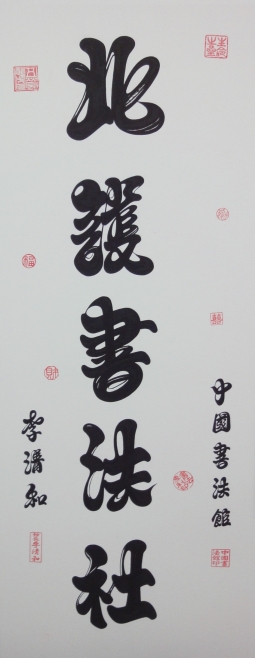 北護書法社
中國書法館
李清和